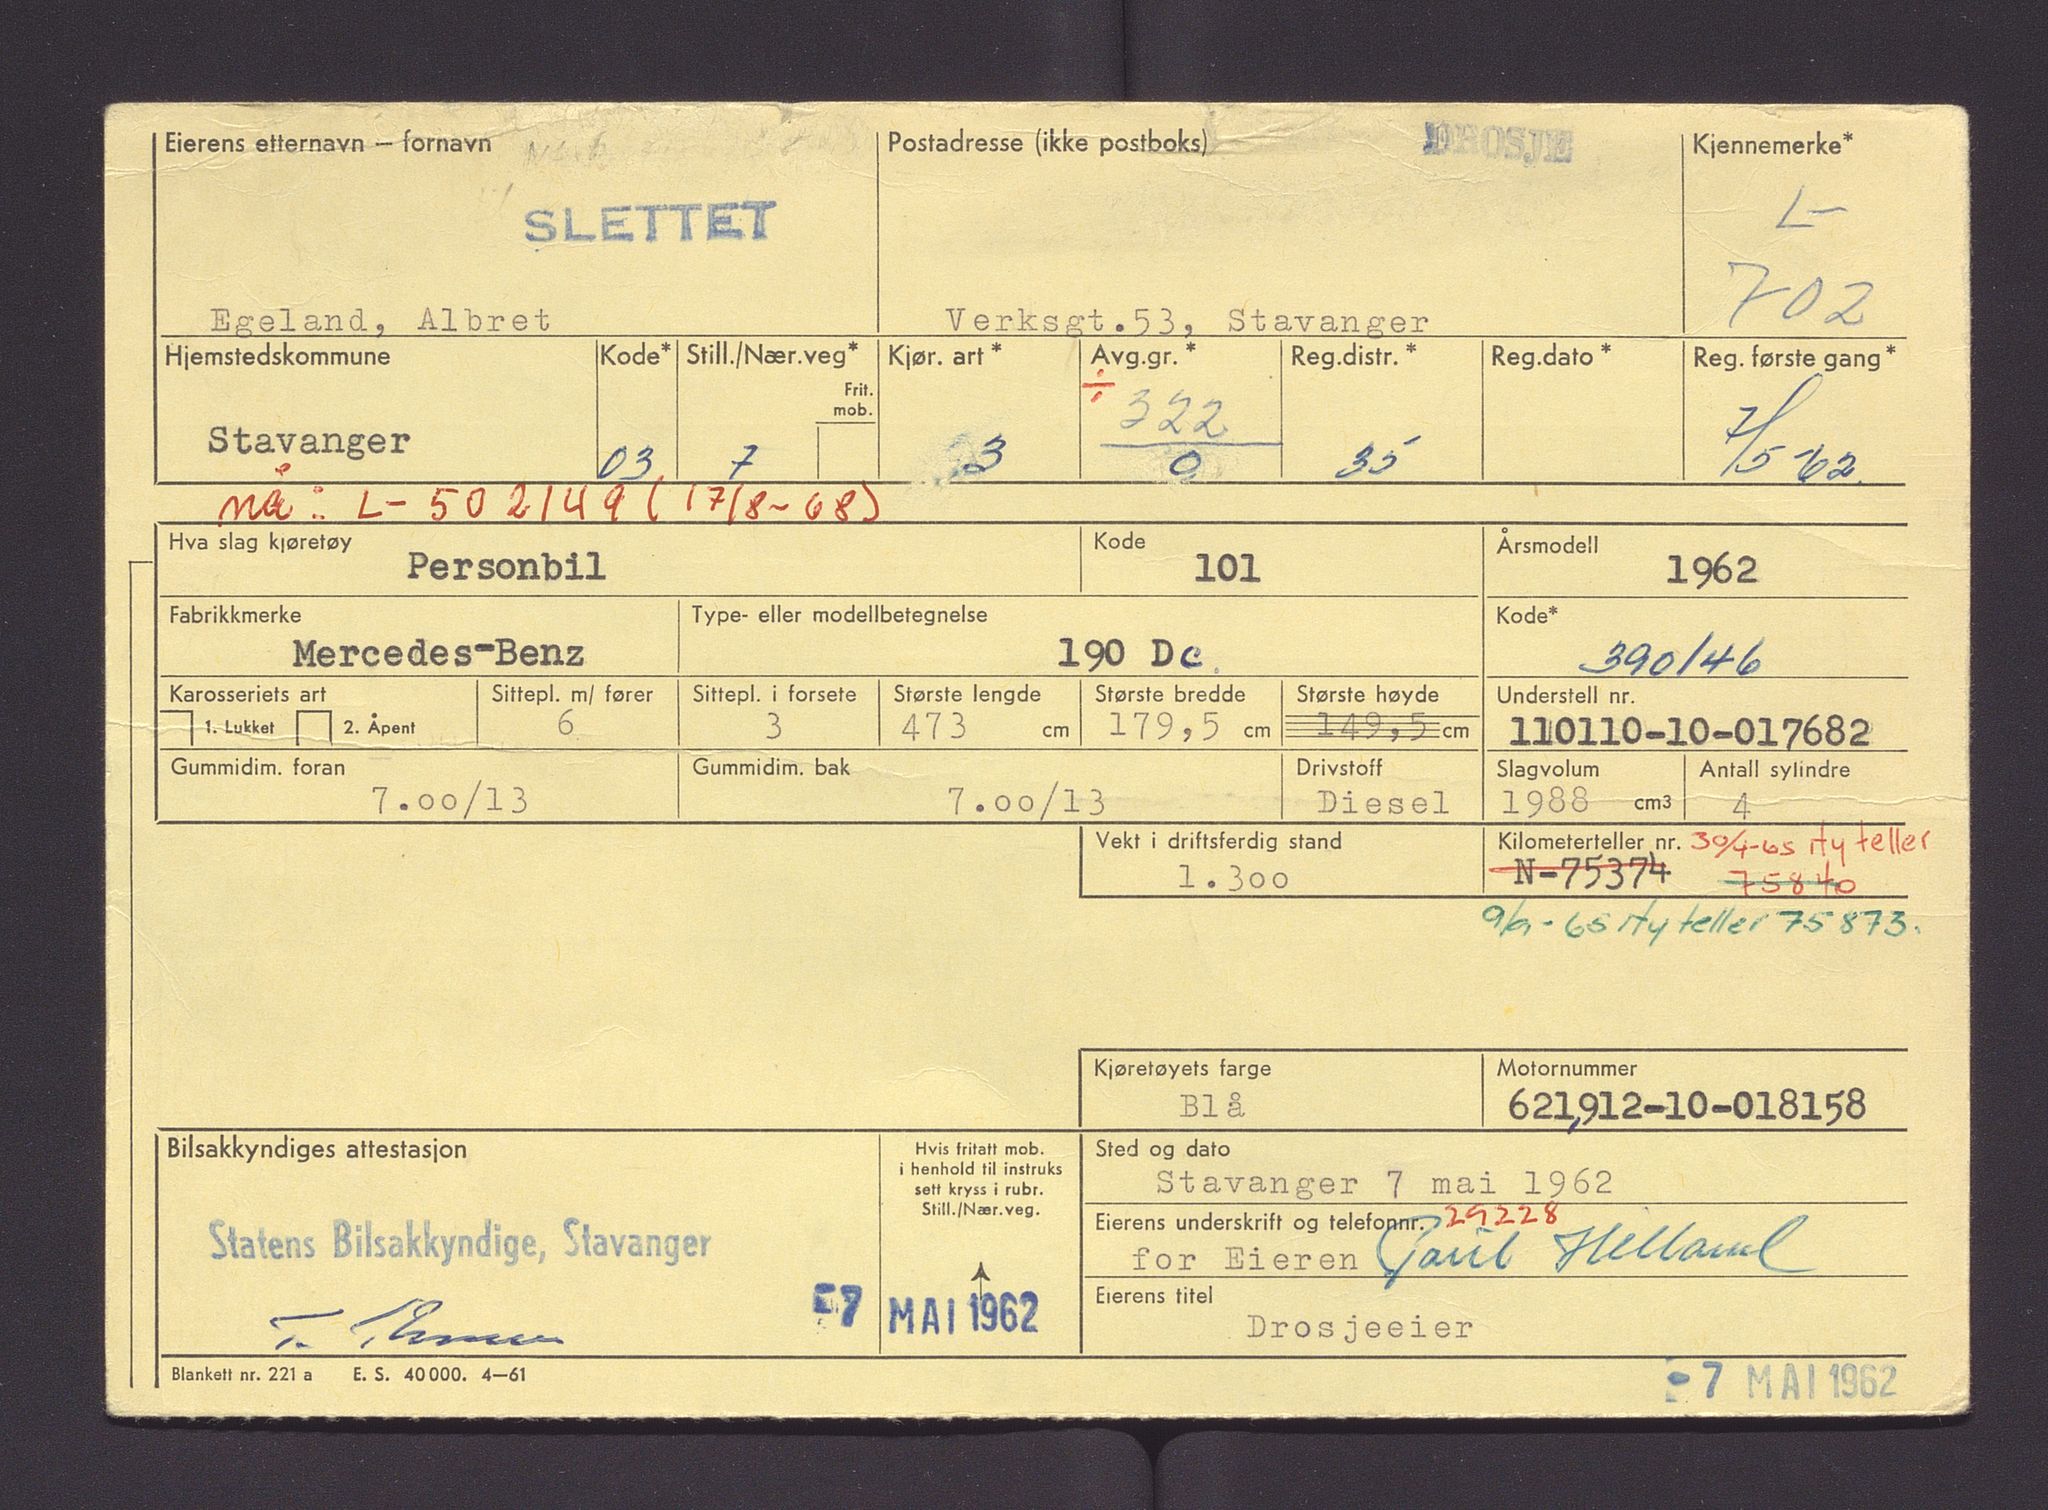 Eierens etternavn – fornavn
Postadresse (ikke postboks)
DROSJE
Kjennemerke*
SLETTET
L-
702
Egeland, Albret
Verksgt.53, Stavanger
Hjemstedskommune
Kode*
Still./Nær.veg*
Frit.
mob.
Kjør. art*
Avg.gr.*
Reg.distr.*
Reg.dato*
Reg. første gang*
Stavanger
03
7
3
÷
322
0
35
7/5-62
nå: L-502149 (17/8-68)
Hva slag kjøretøy
Personbil
Kode
101
Årsmodell
1962
Fabrikkmerke
Mercedes-Benz
Type- eller modellbetegnelse
190 Dc.
Kode*
390/46
Karosseriets art
1. Lukket
2. Åpent
Sittepl. m/ fører
6
Sittepl. i forsete
3
Største lengde
473 cm
Største bredde
179,5 cm
Største høyde
149,5 cm
Understell nr.
110110-10-017682
Gummidim. foran
7.00/13
Gummidim. bak
7.00/13
Drivstoff
Diesel
Slagvolum
1988 cm3
Antall sylindre
4
Vekt i driftsferdig stand
1.300
Kilometerteller nr. 30/4-65 Ny teller
N-75374 75840
9/9-65 Ny teller 75873.
Kjøretøyets farge
Blå
Motornummer
621,912-10-018158
Bilsakkyndiges attestasjon
Hvis fritatt mob.
i henhold til instruks
sett kryss i rubr.
Still./Nær.veg.
Sted og dato
Stavanger 7 mai 1962
Statens Bilsakkyndige, Stavanger
Eierens underskrift og telefonnr. 29228
for Eieren Helland
-7 MAI 1962
Eierens titel
Drosjeeier
Blankett nr. 221 a E. S. 40000. 4–61
-7 MAI 1962